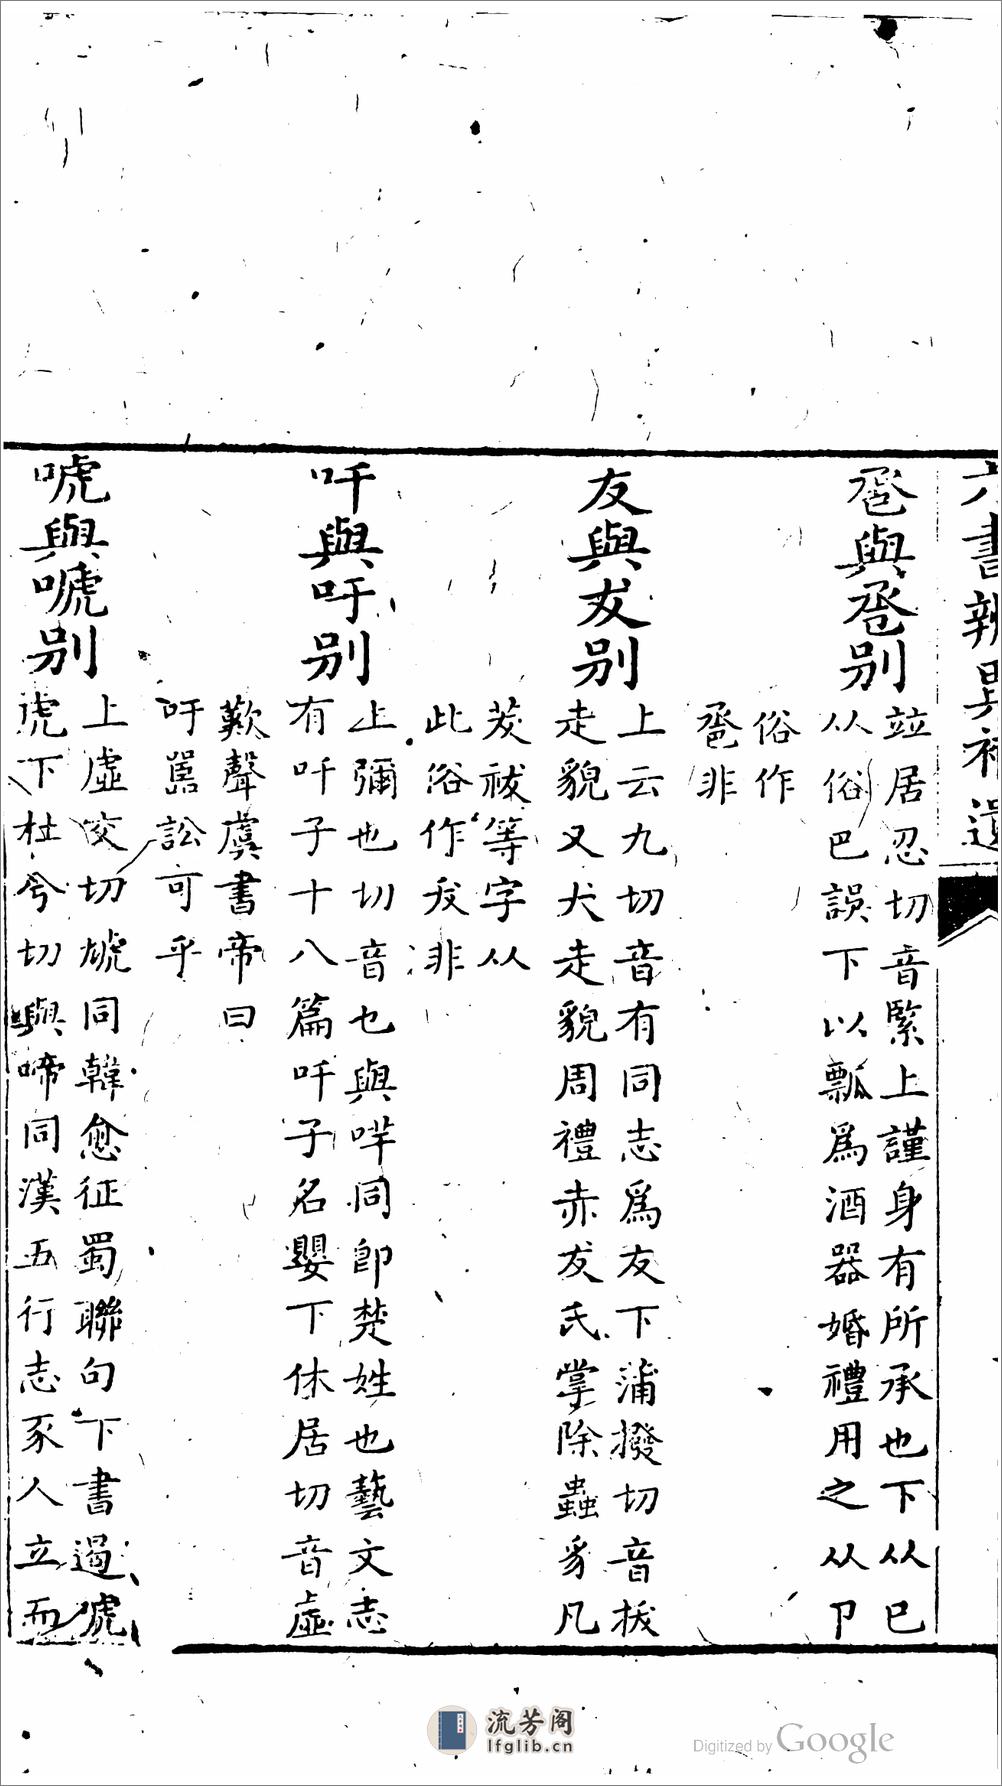 六書辨異補遺
卺與巹别
竝居忍切音緊上謹身有所承也下从巳
从俗巴誤下以瓢爲酒器婚禮用之从卩
俗作
卺非
友與犮别
上云九切音有同志爲友下蒲撥切音拔
走貌又犬走貌周禮赤犮氏掌除蟲豸凡
茇祓等字从
此俗作犮非
吀與吁别
上彌也切音乜與哶同卽楚姓也藝文志
有吀子十八篇吀子名嬰下休居切音虛
歎聲虞書帝曰
吁嚚訟可乎
唬與嗁别
上虛交切虓同韓愈征蜀聯句下書過唬
虎下杜兮切與啼同漢五行志豕人立而
流芳阁
lfglib.cn
Digitized by Google